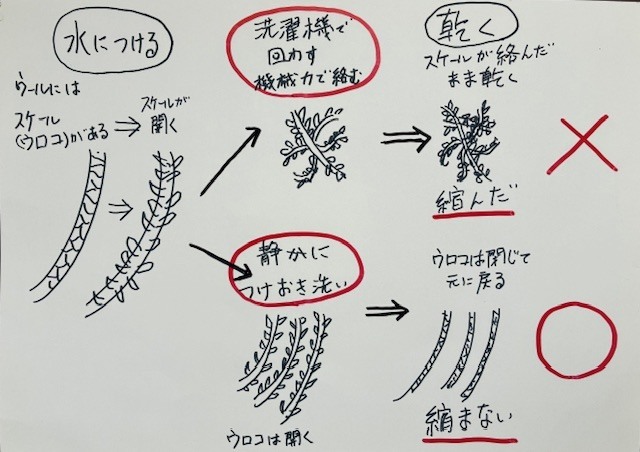 水につける
ウールには
スケール
(ウロコ)がある
スケールが
開く
洗濯機で
回わす
機械力で絡む
乾く
スケールが絡んだ
まま乾く
縮んだ
静かに
つけおき洗い
ウロコは開く
ウロコは閉じて
元に戻る
縮まない